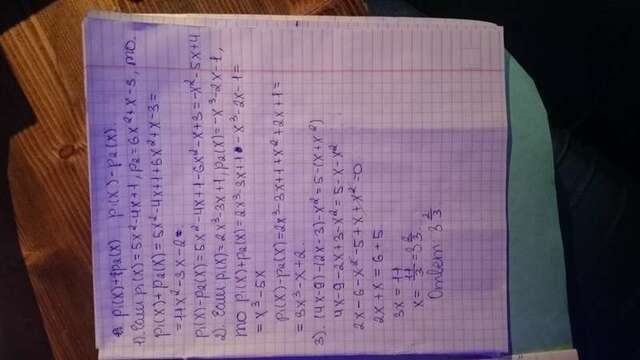 p₁(x)+p₂(x) p₁(x)-p₂(x)
1) Если p₁(x)=5x²-4x+1, p₂=6x²+x-3, то
p₁(x)+p₂(x)=5x²-4x+1+6x²+x-3=
=11x²-3x-2
p₁(x)-p₂(x)=5x²-4x+1-6x²-x+3=-x²-5x+4
2) Если p₁(x)=2x³-3x+1, p₂(x)=-x³-2x-1,
то p₁(x)+p₂(x)=2x³-3x+1-x³-2x-1=
=x³-5x
p₁(x)-p₂(x)=2x³-3x+1+x²+2x+1=
=3x³-x+2
3) (4x-9)-(2x-3)-x²=5-(x+x²)
4x-9-2x+3-x²=5-x-x²
2x-6-x²-5+x+x²=0
2x+x=6+5
3x=11
x=11/3=3 2/3
Ответ: 3 2/3